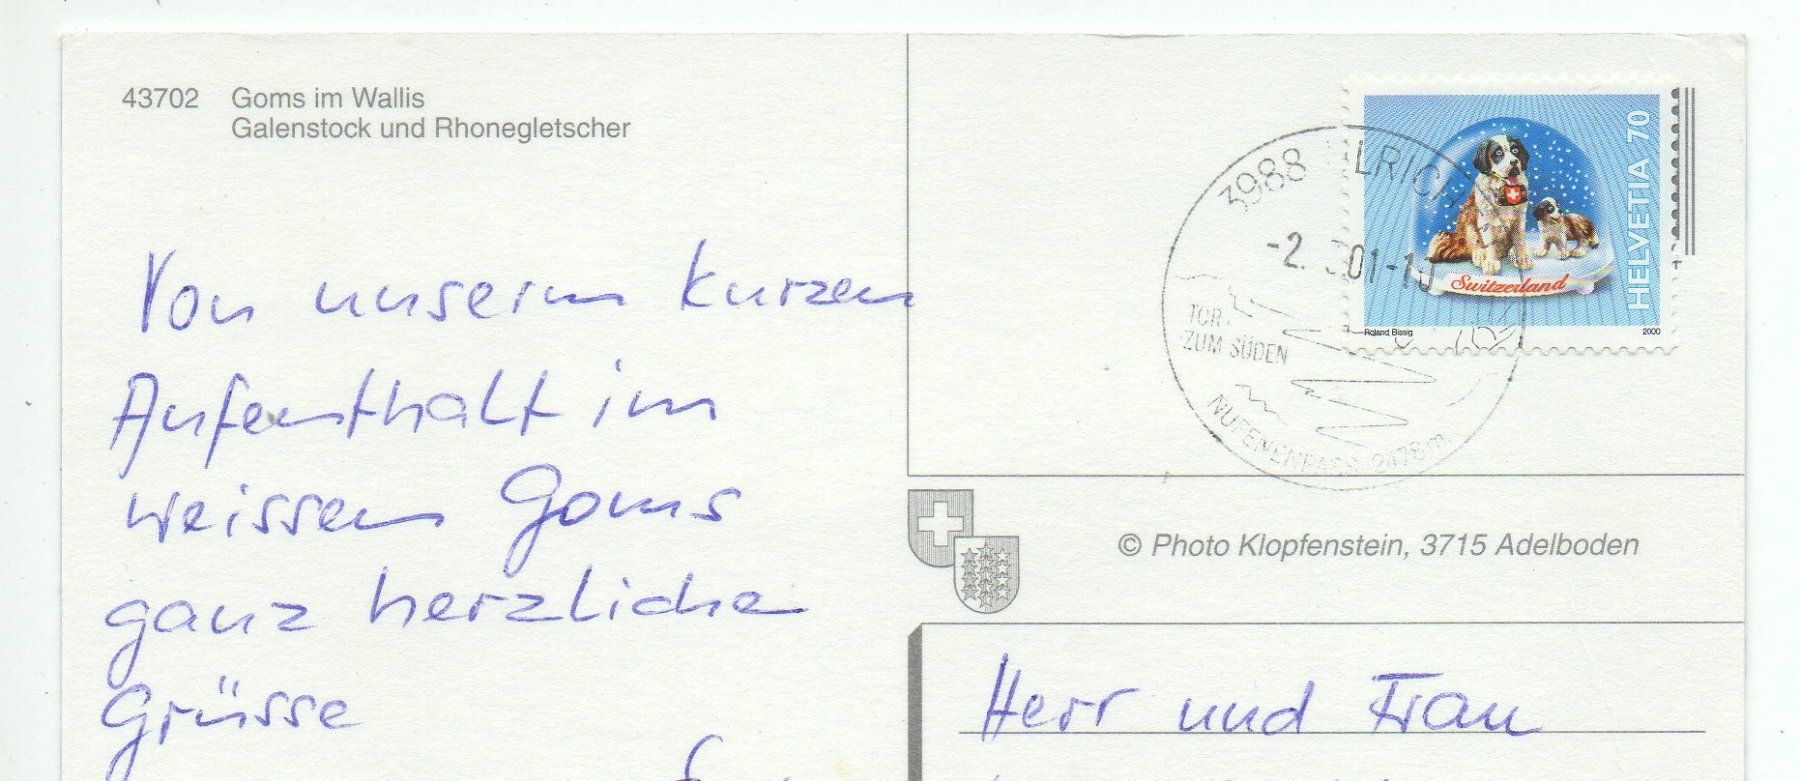 43702 Goms im Wallis
Galenstock und Rhonegletscher
Von unserm kurzen
Aufenthalt im
weissen Goms
ganz herzliche
Grüsse
3988 ULRICH
-2. 01-1
TOR
ZUM SÜDEN
NUFENENPASS 2478m
HELVETIA 70
Switzerland
Roland Bissig 2000
© Photo Klopfenstein, 3715 Adelboden
Herr und Frau